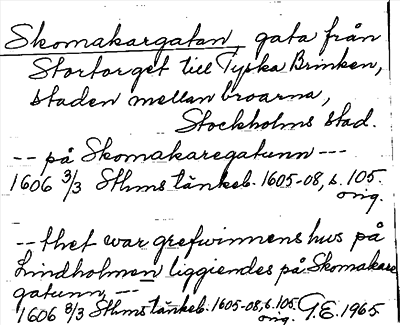 Skomakargatan, gata från
Stortorget till Tyska Brinken,
staden mellan broarna,
Stockholms stad.
-- på Skomakaregatunn ---
1606 3/3 Sthms tänkeb. 1605-08, s. 105.
orig.
-- thet war grefwinnens hus på
Lindholmen liggiendes på Skomakare
gatunn, --
1606 8/3 Sthms tänkeb. 1605-08, s. 105.
orig. G.E. 1965